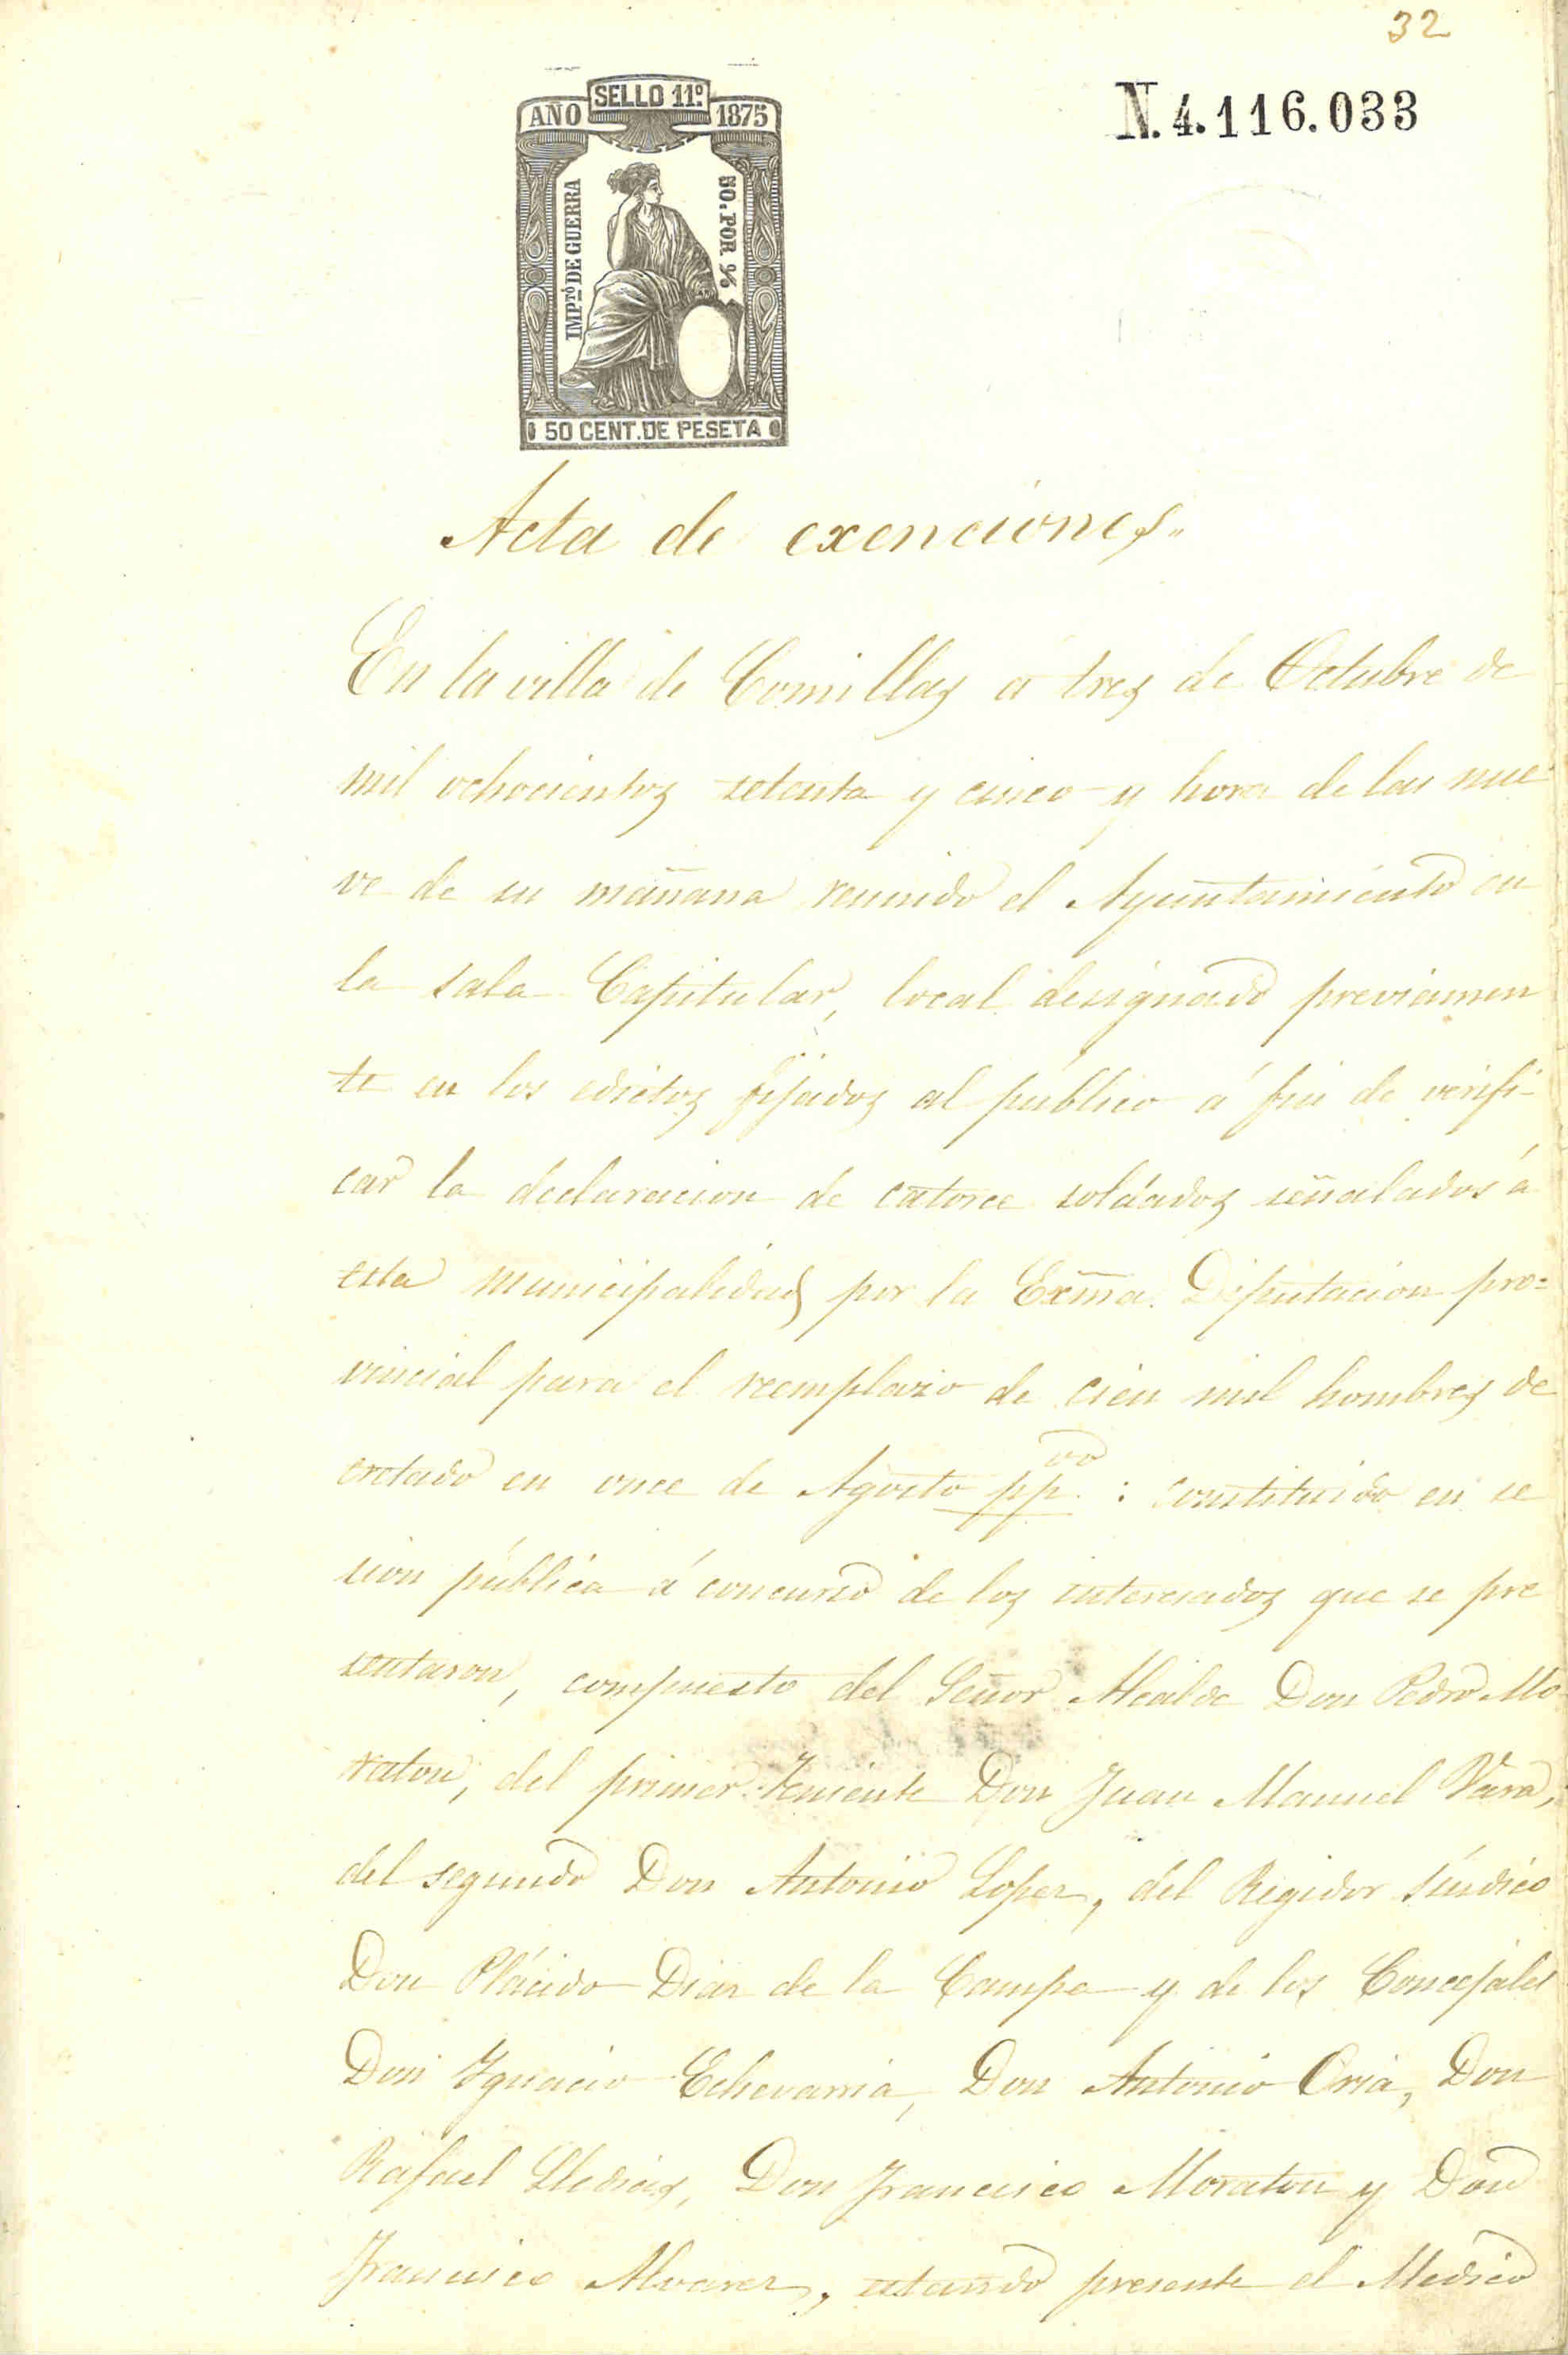 32
AÑO SELLO 11º 1875
N. 4.116.033
IMPTO DE GUERRA
50, POR %
50 CENT. DE PESETA
Acta de exenciones.
En la villa de Comillas á tres de Octubre de
mil ochocientos setenta y cinco y hora de las nue
ve de su mañana reunido el Ayuntamiento en
la sala Capitular, local designado previamen
te en los edictos fijados al público á fin de verifi-
car la declaracion de catorce soldados señalados á
esta Municipalidad por la Exma. Diputacion pro=
vincial para el reemplazo de cien mil hombres de
cretado en once de Agosto pp.do : constituido en se
sion pública á concurso de los interesados que se pre
sentaron, compuesto del Señor Alcalde Don Pedro Mo
raton, del primer Teniente Don Juan Manuel Vara,
del segundo Don Antonio Lopez, del Regidor Síndico
Don Plácido Diaz de la Campa y de los Concejales
Don Ygnacio Echevarria, Don Antonio Oria, Don
Rafael Lledias, Don Francisco Moraton y Don
Francisco Alvarez, estando presente el Medico